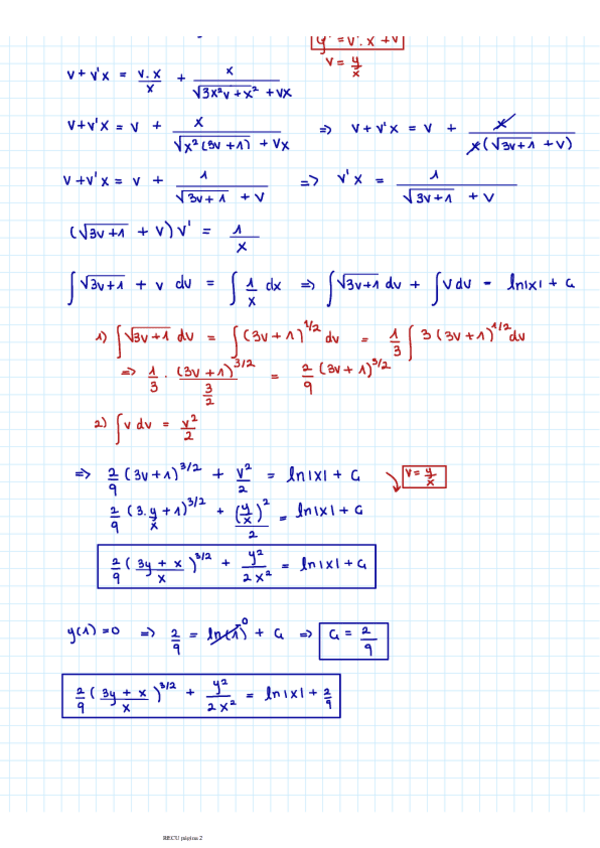 y' = v'.x + v
v = y/x
v + v'x = v.x/x + x/(√(3x²v + x²) + vx)
v + v'x = v + x/(√(x²(3v+1)) + vx) => v + v'x = v + x/(x(√(3v+1) + v))
v + v'x = v + 1/(√(3v+1) + v) => v'x = 1/(√(3v+1) + v)
(√(3v+1) + v) v' = 1/x
∫ √(3v+1) + v dv = ∫ 1/x dx => ∫ √(3v+1) dv + ∫ v dv = ln|x| + C₁
1) ∫ √(3v+1) dv = ∫ (3v+1)^(1/2) dv = 1/3 ∫ 3(3v+1)^(1/2) dv
=> 1/3 . (3v+1)^(3/2)/(3/2) = 2/9 (3v+1)^(3/2)
2) ∫ v dv = v²/2
=> 2/9 (3v+1)^(3/2) + v²/2 = ln|x| + C₁ v = y/x
2/9 (3.y/x + 1)^(3/2) + (y/x)²/2 = ln|x| + C₁
2/9 ((3y + x)/x)^(3/2) + y²/(2x²) = ln|x| + C₁
y(1) = 0 => 2/9 = ln(1) 0 + C₁ => C₁ = 2/9
2/9 ((3y + x)/x)^(3/2) + y²/(2x²) = ln|x| + 2/9
RECU página 2